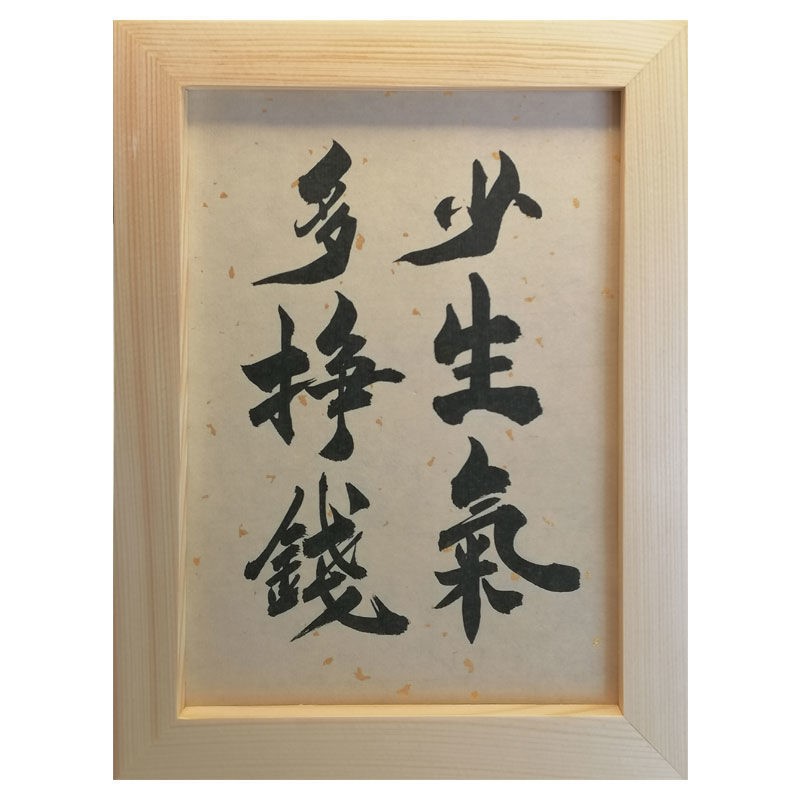 少生氣
多掙錢